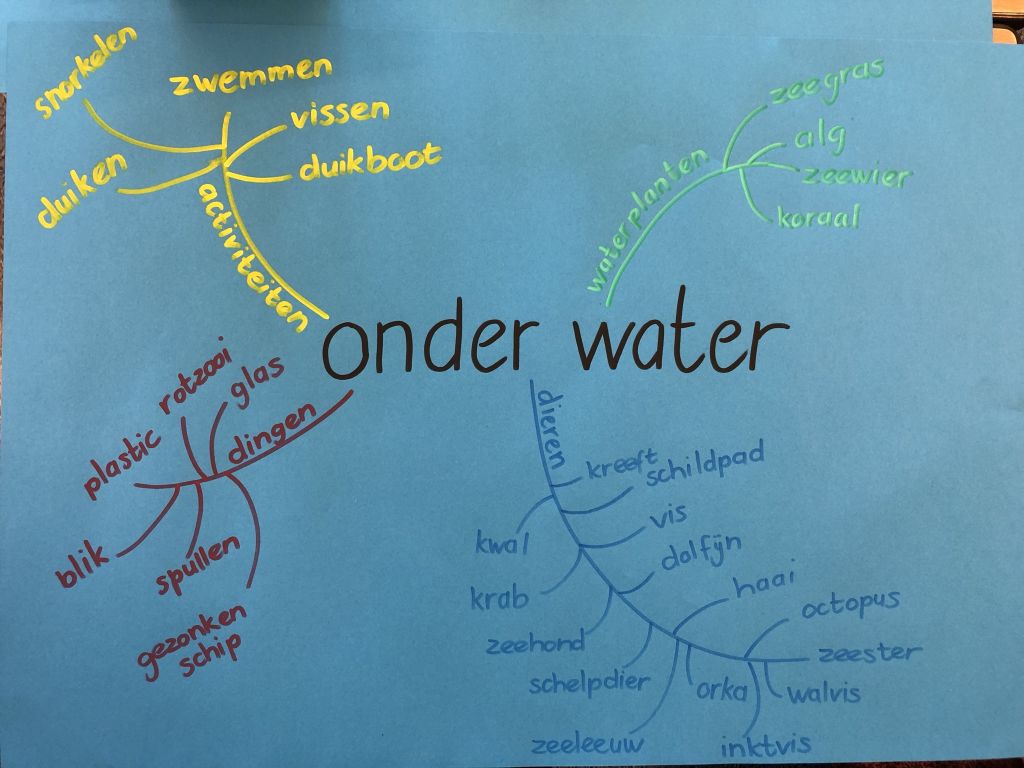 onder water
activiteiten
snorkelen
zwemmen
vissen
duikboot
duiken
waterplanten
zeegras
alg
zeewier
koraal
dingen
glas
rotzooi
plastic
blik
spullen
gezonken
schip
dieren
kreeft
schildpad
kwal
vis
krab
dolfijn
zeehond
haai
schelpdier
octopus
zeester
orka
walvis
zeeleeuw
inktvis